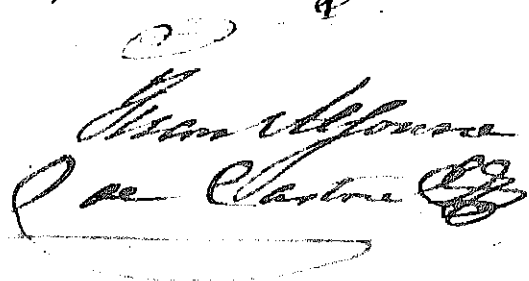 Juan Alfonso
de Castro